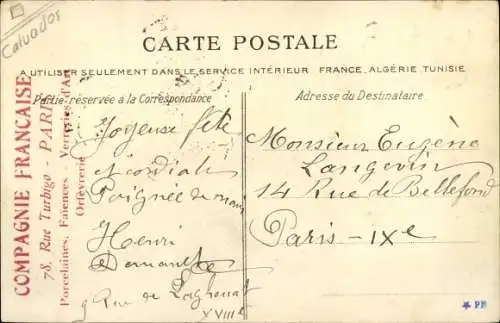 Calvados
CARTE POSTALE
A UTILISER SEULEMENT DANS LE SERVICE INTÉRIEUR FRANCE, ALGÉRIE TUNISIE
Partie réservée à la Correspondance
Adresse du Destinataire
COMPAGNIE FRANÇAISE
78, Rue Turbigo - PARIS
Porcelaines, Faïences, Verreries d'Art
Orfèvrerie
Joyeuse fête
et cordiale
Poignée de main
Henri
9 Rue de Laghouat
XVIIIe
Monsieur Eugène
Langevin
14 Rue de Bellefond
Paris - IXe
* PH